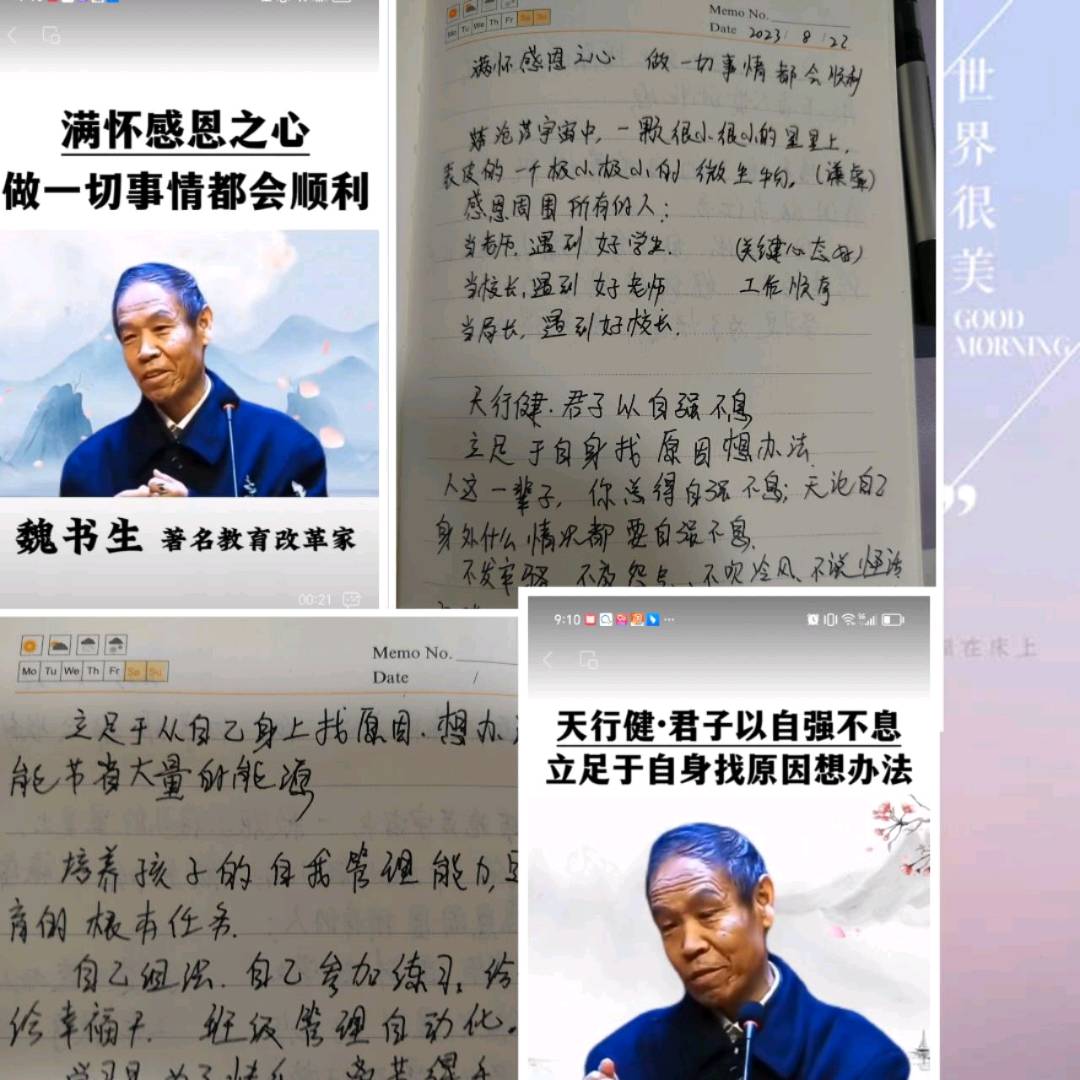 满怀感恩之心
做一切事情都会顺利
魏书生 著名教育改革家
00:21
Memo No.
Mo Tu We Th Fr Sa Su
Date 2023 / 8 / 22
满怀感恩之心 做一切事情都会顺利
宇宙中,一颗很小很小的星星上,
表皮的一个极小极小的微生物。(谦虚)
感恩周围所有的人:
当老师,遇到好学生. (关键心态好)
当校长,遇到好老师 工作顺序
当局长,遇到好校长.
天行健·君子以自强不息
立足于自身找原因想办法
人这一辈子,你总得自强不息;无论自己
身外什么情况都要自强不息.
不发牢骚、不 不吹冷风、不说怪话
世界很美
GOOD
MORNING
在床上
Memo No.
Mo Tu We Th Fr Sa Su
Date /
立足于从自己身上找原因.想办
能节省大量的能源
培养孩子的自我管理能力,
育的根本任务.
自己组织.自己参加练习,给
给幸福 班级管理自动化。
9:10
天行健·君子以自强不息
立足于自身找原因想办法